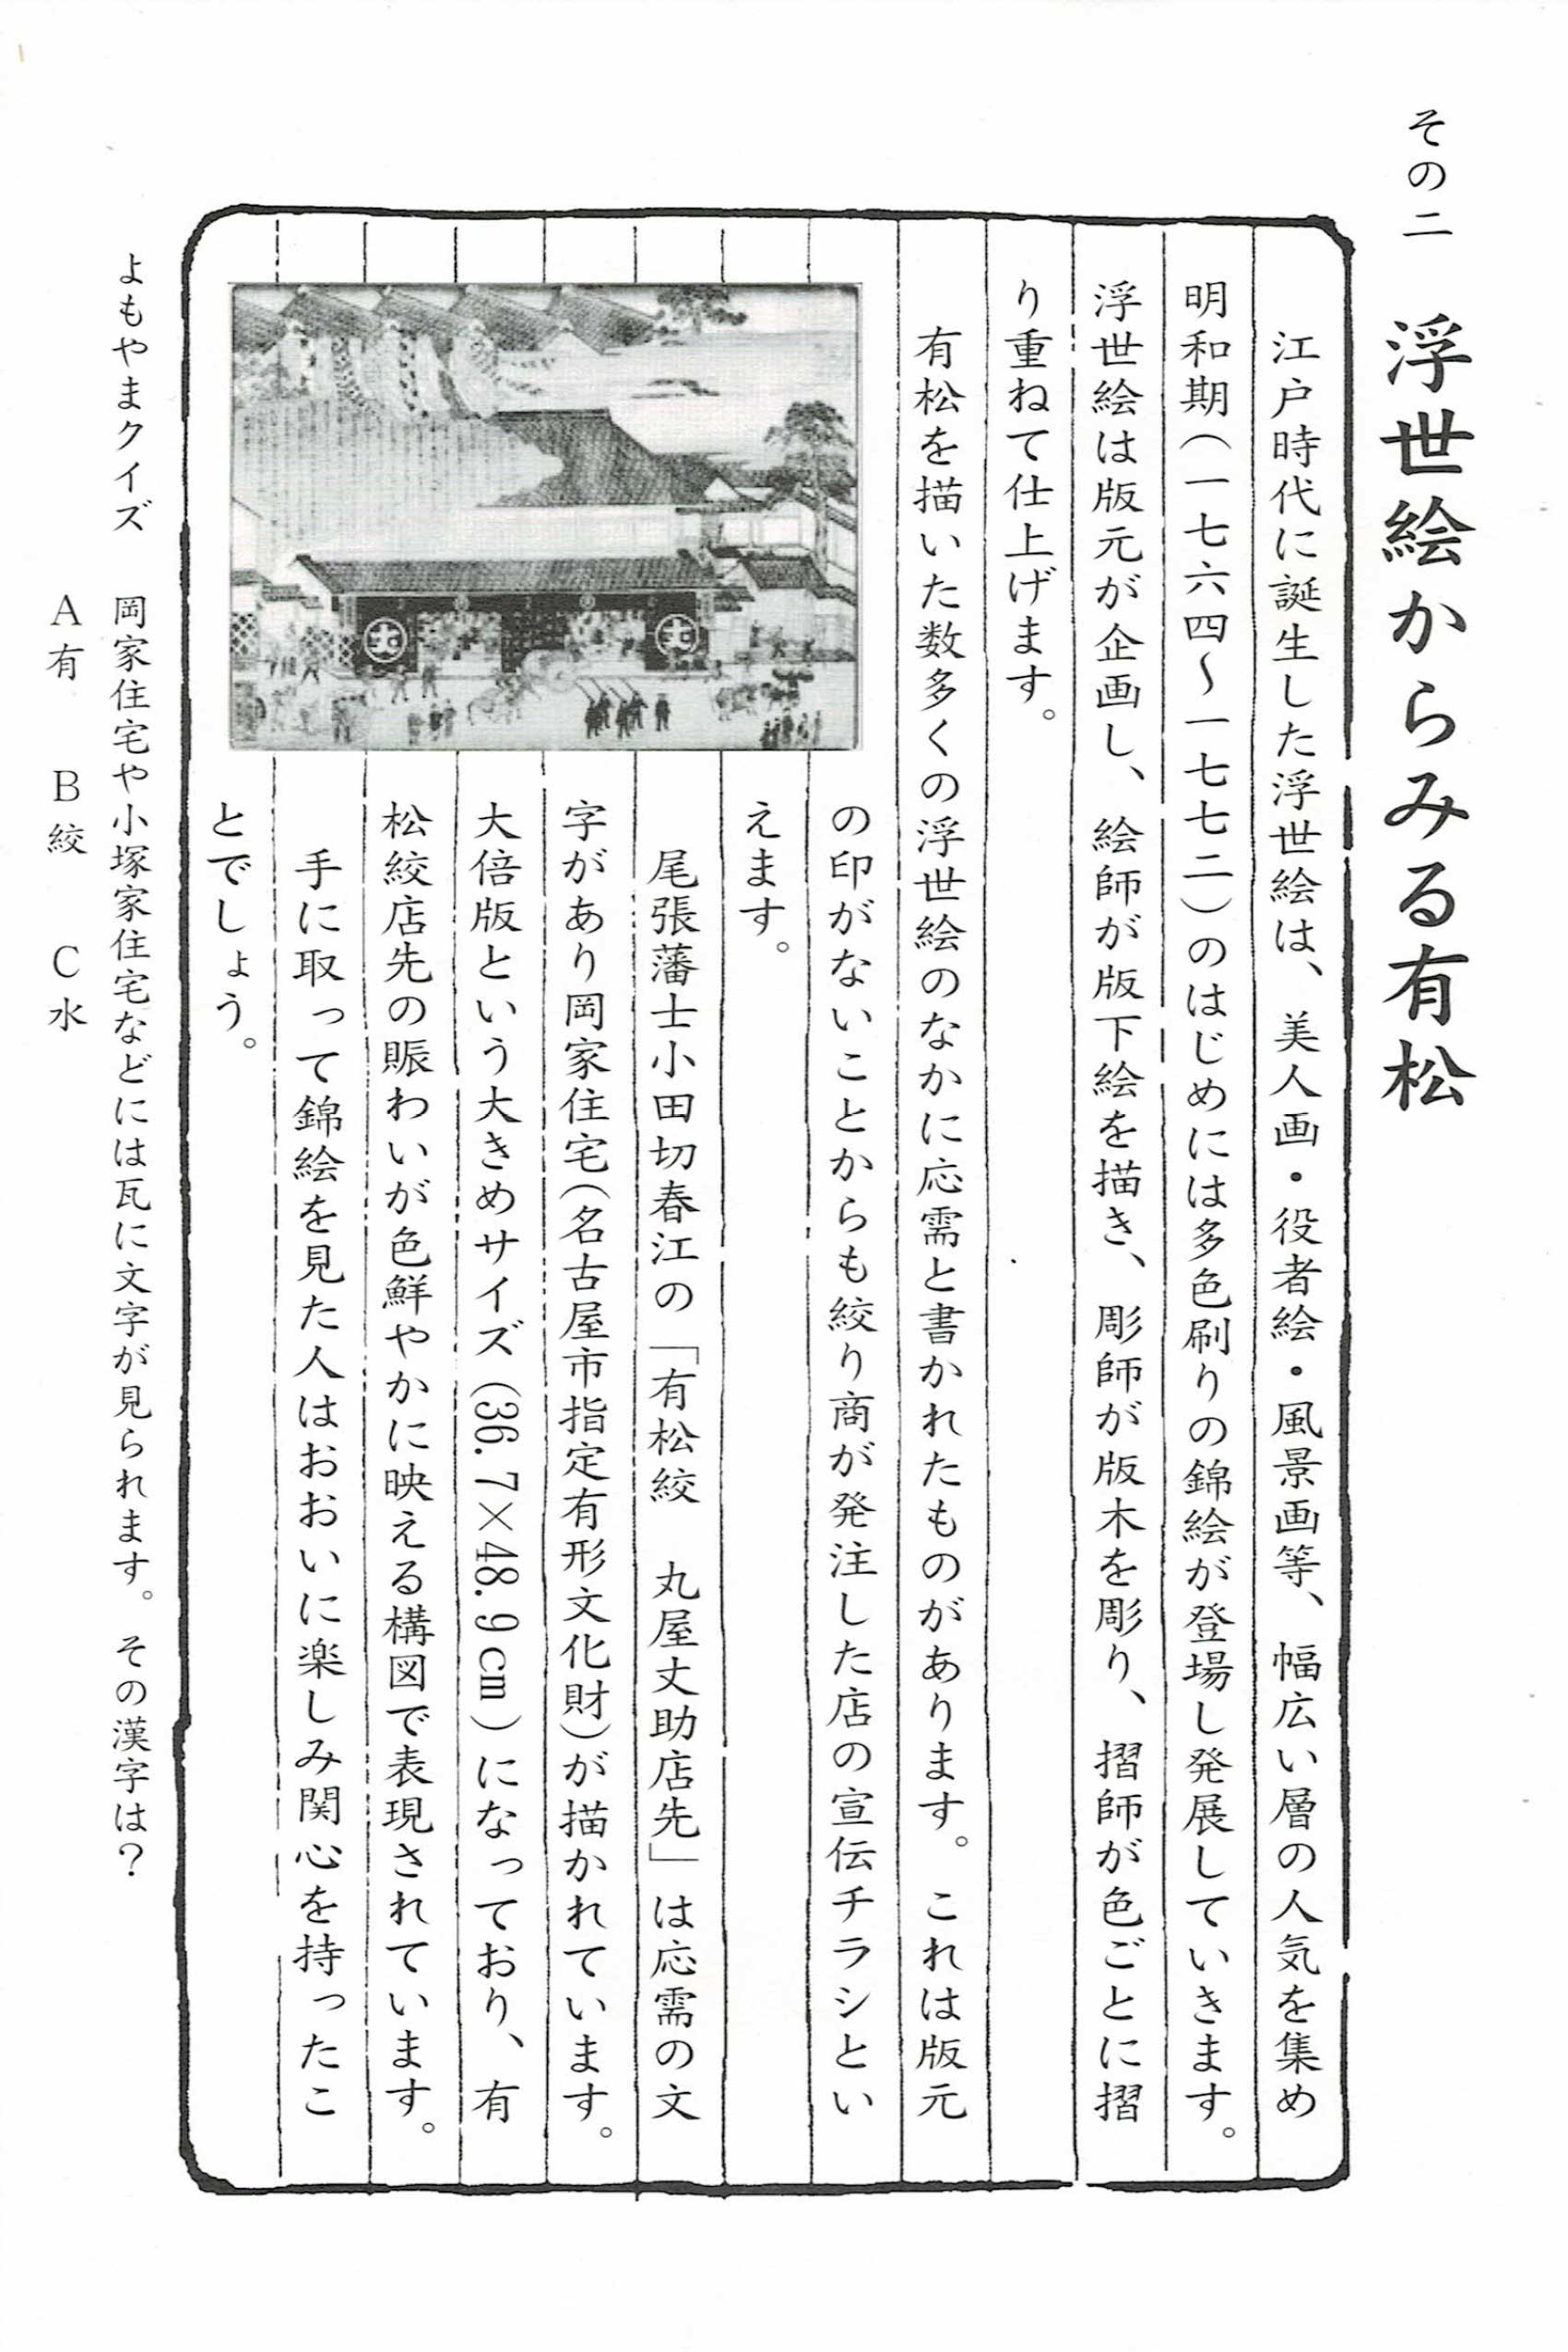 その二　浮世絵からみる有松
江戸時代に誕生した浮世絵は、美人画・役者絵・風景画等、幅広い層の人気を集め
明和期（一七六四～一七七二）のはじめには多色刷りの錦絵が登場し発展していきます。
浮世絵は版元が企画し、絵師が版下絵を描き、彫師が版木を彫り、摺師が色ごとに摺
り重ねて仕上げます。
有松を描いた数多くの浮世絵のなかに応需と書かれたものがあります。これは版元
の印がないことからも絞り商が発注した店の宣伝チラシとい
えます。
尾張藩士小田切春江の「有松絞　丸屋丈助店先」は応需の文
字があり岡家住宅（名古屋市指定有形文化財）が描かれています。
大倍版という大きめサイズ（36.7×48.9cm）になっており、有
松絞店先の賑わいが色鮮やかに映える構図で表現されています。
手に取って錦絵を見た人はおおいに楽しみ関心を持ったこ
とでしょう。
よもやまクイズ　岡家住宅や小塚家住宅などには瓦に文字が見られます。その漢字は？
A有　B絞　C水